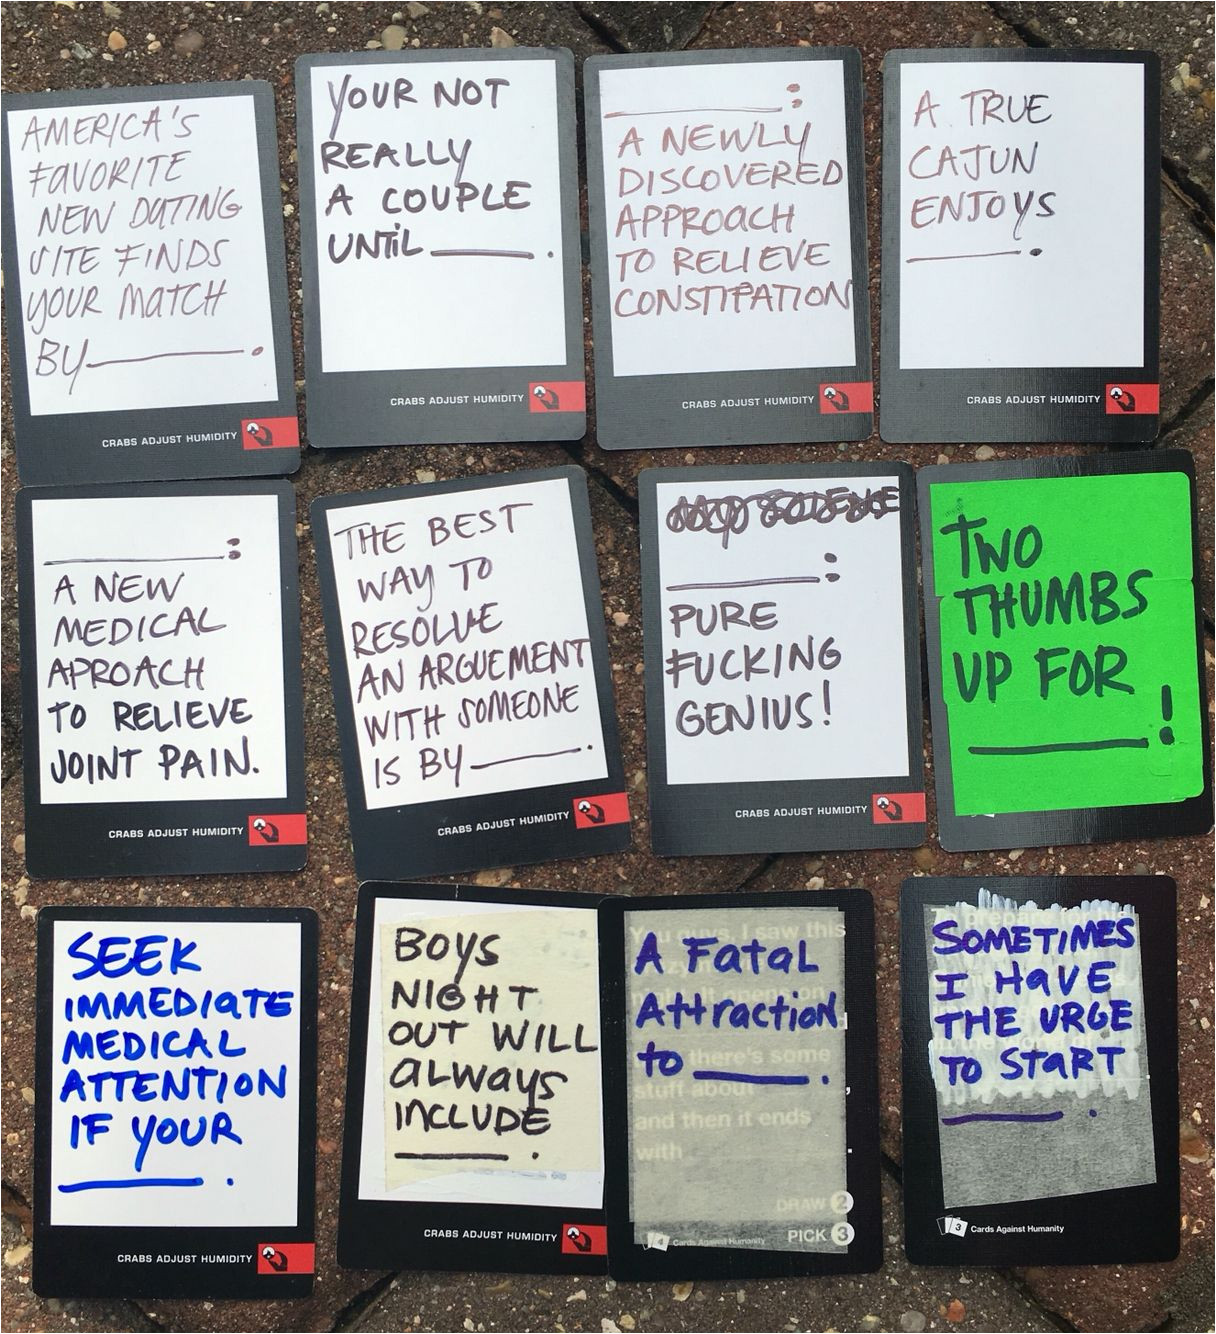 AMERICA'S
FAVORITE
NEW DATING
SITE FINDS
YOUR MATCH
BY________.
CRABS ADJUST HUMIDITY
YOUR NOT
REALLY
A COUPLE
UNTIL ________.
CRABS ADJUST HUMIDITY
________:
A NEWLY
DISCOVERED
APPROACH
TO RELIEVE
CONSTIPATION
CRABS ADJUST HUMIDITY
A TRUE
CAJUN
ENJOYS
________.
CRABS ADJUST HUMIDITY
________:
A NEW
MEDICAL
APROACH
TO RELIEVE
JOINT PAIN.
CRABS ADJUST HUMIDITY
THE BEST
WAY TO
RESOLVE
AN ARGUEMENT
WITH SOMEONE
IS BY________.
CRABS ADJUST HUMIDITY
________:
PURE
FUCKING
GENIUS!
CRABS ADJUST HUMIDITY
TWO
THUMBS
UP FOR
________!
SEEK
IMMEDIATE
MEDICAL
ATTENTION
IF YOUR
________.
CRABS ADJUST HUMIDITY
BOYS
NIGHT
OUT WILL
ALWAYS
INCLUDE
________.
CRABS ADJUST HUMIDITY
You guys, I saw this
A FATAL
ATTRACTION
TO ________.
there's some
stuff about
and then it ends
with
DRAW 2
PICK 3
4 Cards Against Humanity
SOMETIMES
I HAVE
THE URGE
TO START
________.
3 Cards Against Humanity